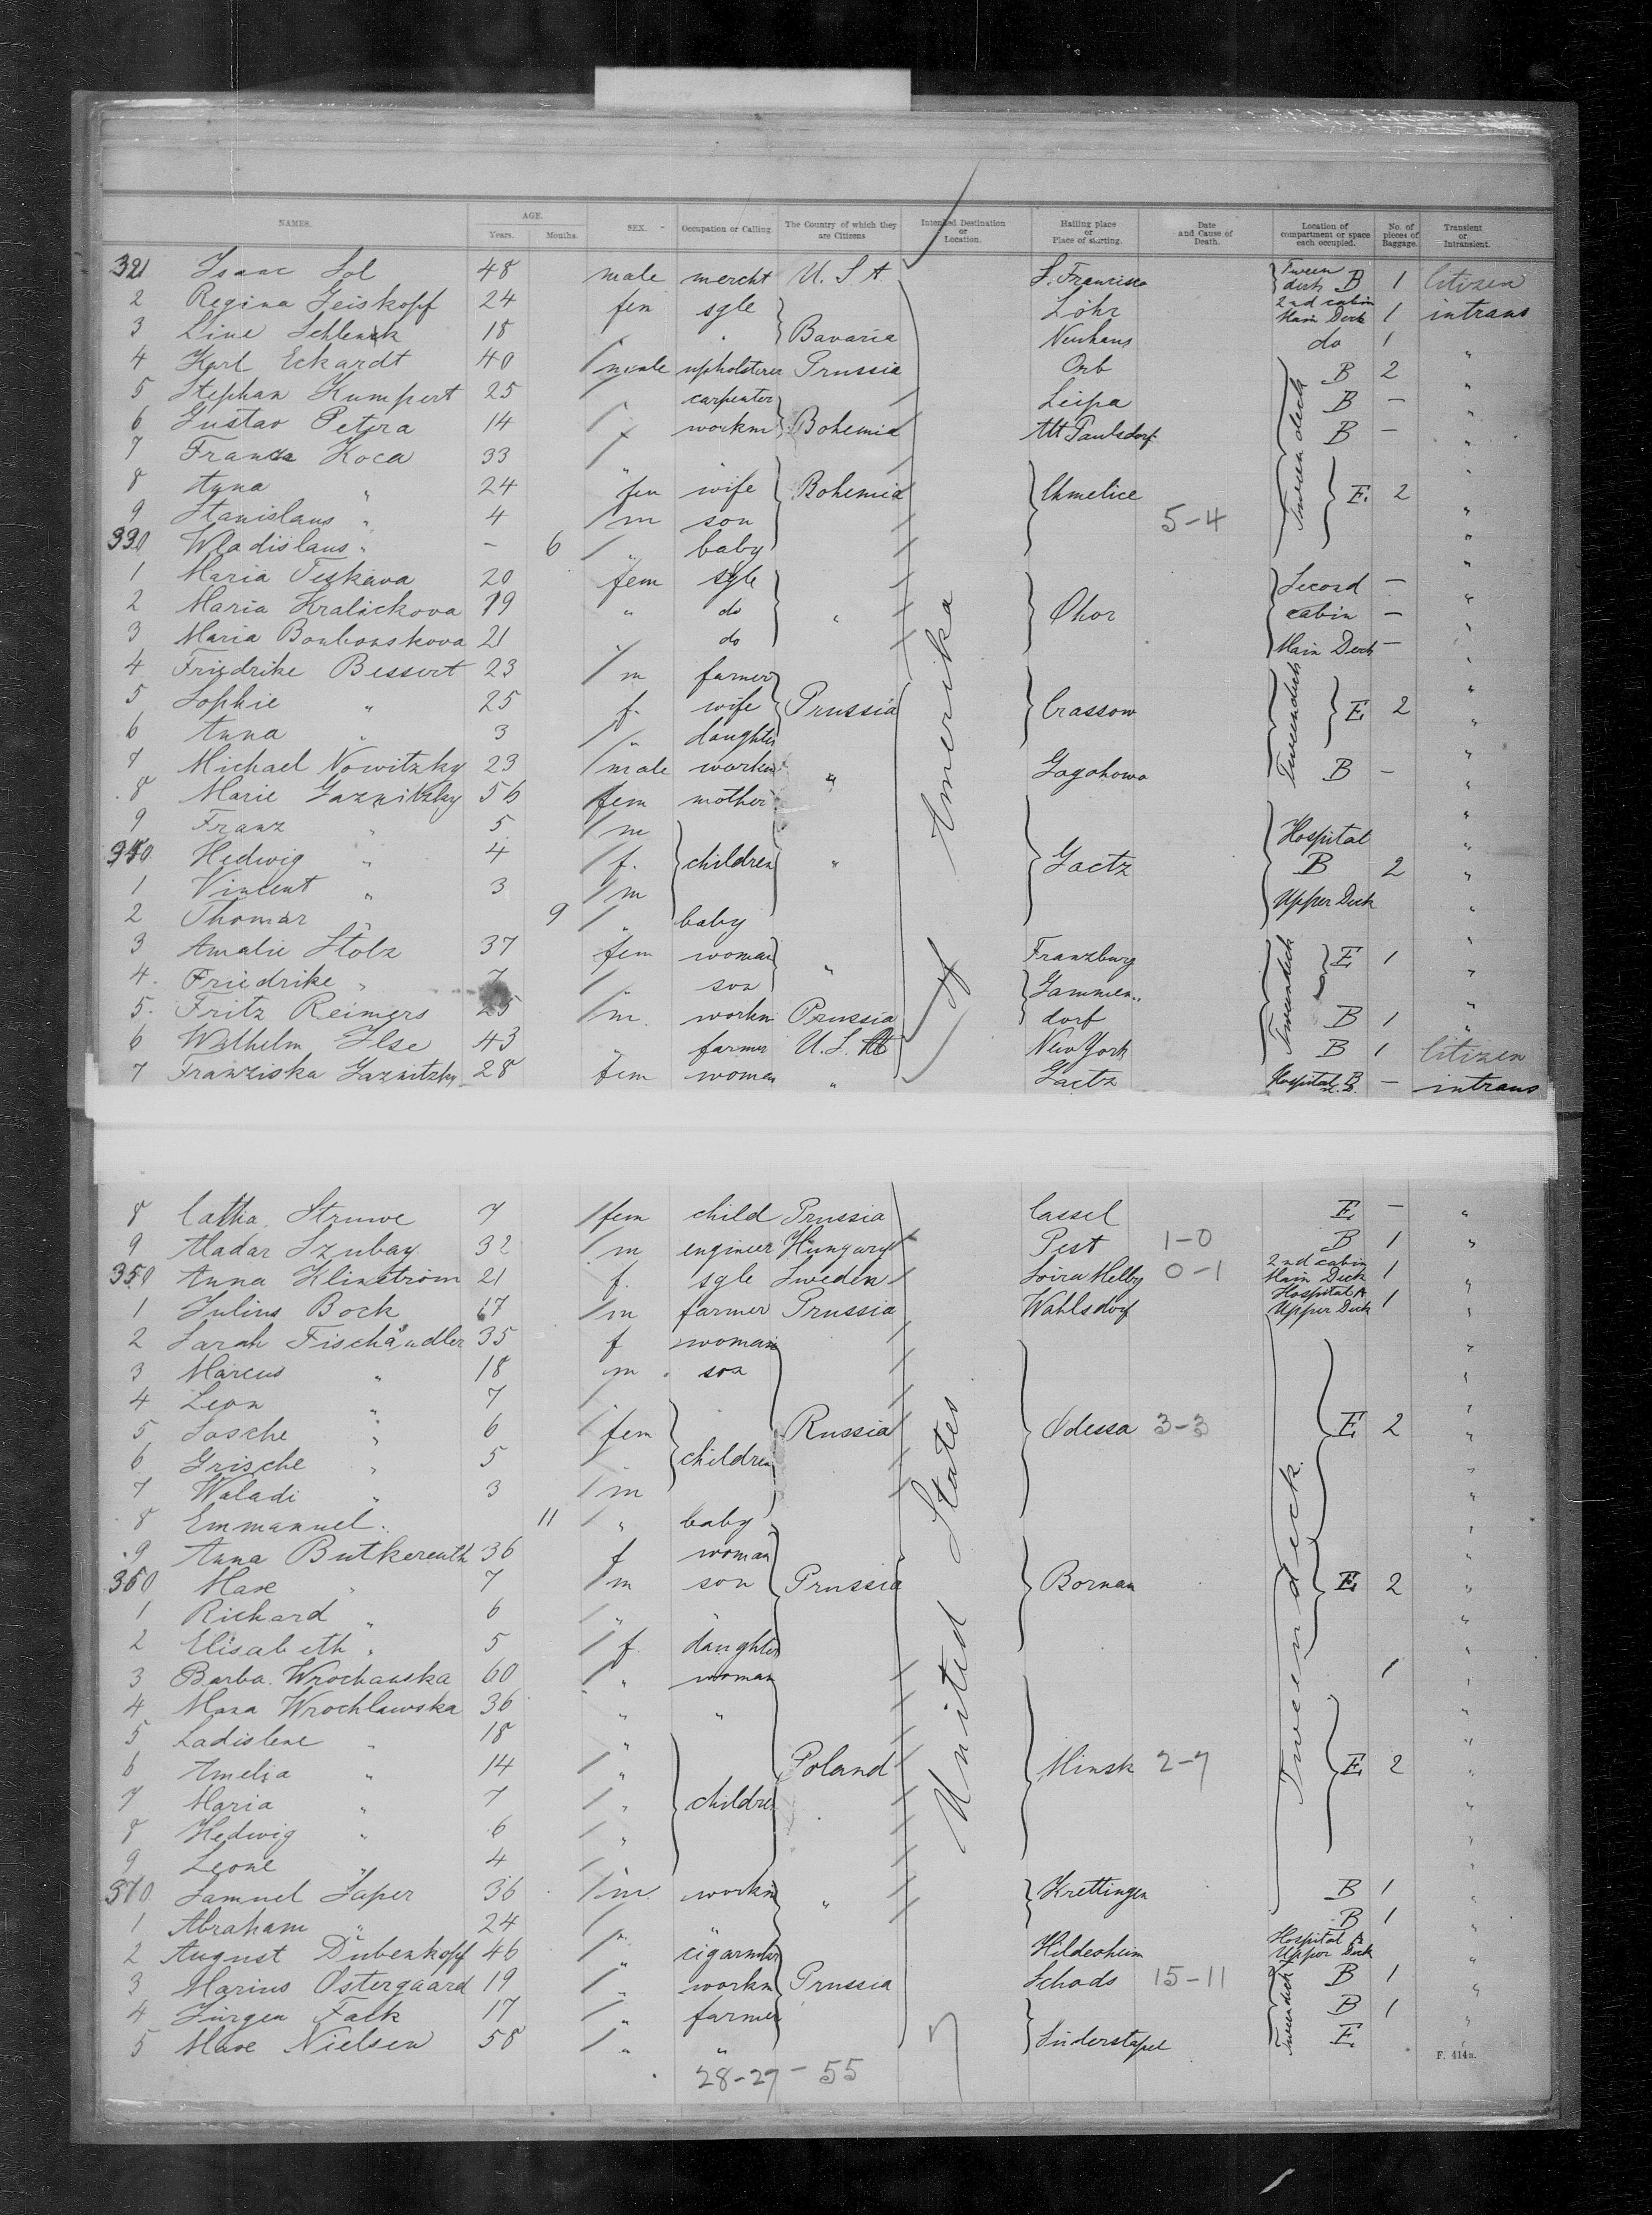 NAMES. AGE. Years. Months. SEX. Occupation or Calling. The Country of which they are Citizens Intended Destination or Location. Hailing place or Place of starting. Date and Cause of Death. Location of compartment or space each occupied. No. of pieces of Baggage. Transient or Intransient.
321 Isaac Sol 48 male mercht U. S. A. S. Francisco Tween deck B 1 Citizen
2 Regina Geiskopf 24 fem sgle Löhr 2nd cabin Main Deck 1 intrans
3 Line Schlenk 18 " " Bavaria Neuhaus do 1 "
4 Karl Eckardt 40 male upholsterer Prussia Orb B 2 "
5 Stephan Kumpert 25 carpenter Leipa B - "
6 Gustav Petera 14 " workm Bohemia Alt Paulsdorf B - "
7 Franz Koca 33 " "
8 Anna " 24 fem wife Bohemia Chmelice Tween deck E. 2
9 Stanislaus " 4 m son 5-4 "
330 Wladislaus " - 6 " baby "
1 Maria Teskava 20 fem sgle Second -
2 Maria Kralickova 19 " do " Chor cabin - "
3 Maria Bonbonskova 21 " do Main Deck - "
4 Friedrike Bessert 23 m farmer "
5 Sophie " 25 f. wife Prussia Crassow Tweendeck E. 2 "
6 Anna " 3 " daughter "
7 Michael Nowitzky 23 male workm " Gogohowo B - "
8 Marie Gaznitzky 56 fem mother "
9 Franz " 5 m Hospital "
340 Hedwig " 4 f. children " Gaetz B 2 "
1 Vincent " 3 m Upper Deck "
2 Thomas " 9 " baby "
3 Amalie Stolz 37 fem woman " Franzburg E. 1 "
4. Friedrike " 7 son Gammen- "
5. Fritz Reimers 25 m. workm Prussia dorf Tweendeck B 1 "
6 Wilhelm Ilse 43 " farmer U. S. A New York B 1 Citizen
7 Franziska Gaznitzky 28 fem woman " Gaetz Hospital B - intrans
8 Catha. Struwe 7 fem child Prussia Cassel E. - "
9 Aladar Szubay 32 m engineer Hungary Pest 1-0 B 1 "
350 Anna Klinström 21 f. sgle Sweden 0-1 2nd cabin Main Deck 1 "
1 Julius Bock 67 m farmer Prussia Wahlsdorf Hospital A Upper Deck 1 "
2 Sarah Fischändler 35 f woman "
3 Marcus " 18 m son "
4 Leon " 7 "
5 Sosche " 6 fem Russia Odessa 3-3 E. 2 "
6 Grische " 5 children "
7 Waladi " 3 m "
8 Emmanuel " 11 " baby "
9 Anna Butkereuth 36 f woman "
360 Max " 7 m son Prussia Bornan E. 2 "
1 Richard " 6 " " "
2 Elisabeth " 5 f. daughter "
3 Barba. Wrochawska 60 " woman 1 "
4 Mara Wrochlawska 36 " " "
5 Ladislene " 18 "
6 Amelia " 14 " Poland Minsk 2-7 Tween deck. E. 2 "
7 Maria " 7 " children "
8 Hedwig " 6 " "
9 Leone " 4 "
370 Samuel Saper 36 m. workm " Krettingen B 1 "
1 Abraham " 24 " " B 1 "
2 August Dübenkopf 46 " cigarmker Hildesheim Hospital A Upper Deck "
3 Marius Ostergaard 19 " workm Prussia Schods 15-11 Tweendeck B 1 "
4 Jürgen Falk 17 " farmer B 1 "
5 Max Nielsen 58 " " Süderstapel E. "
United States of Amerika
28-27-55
F. 414a.